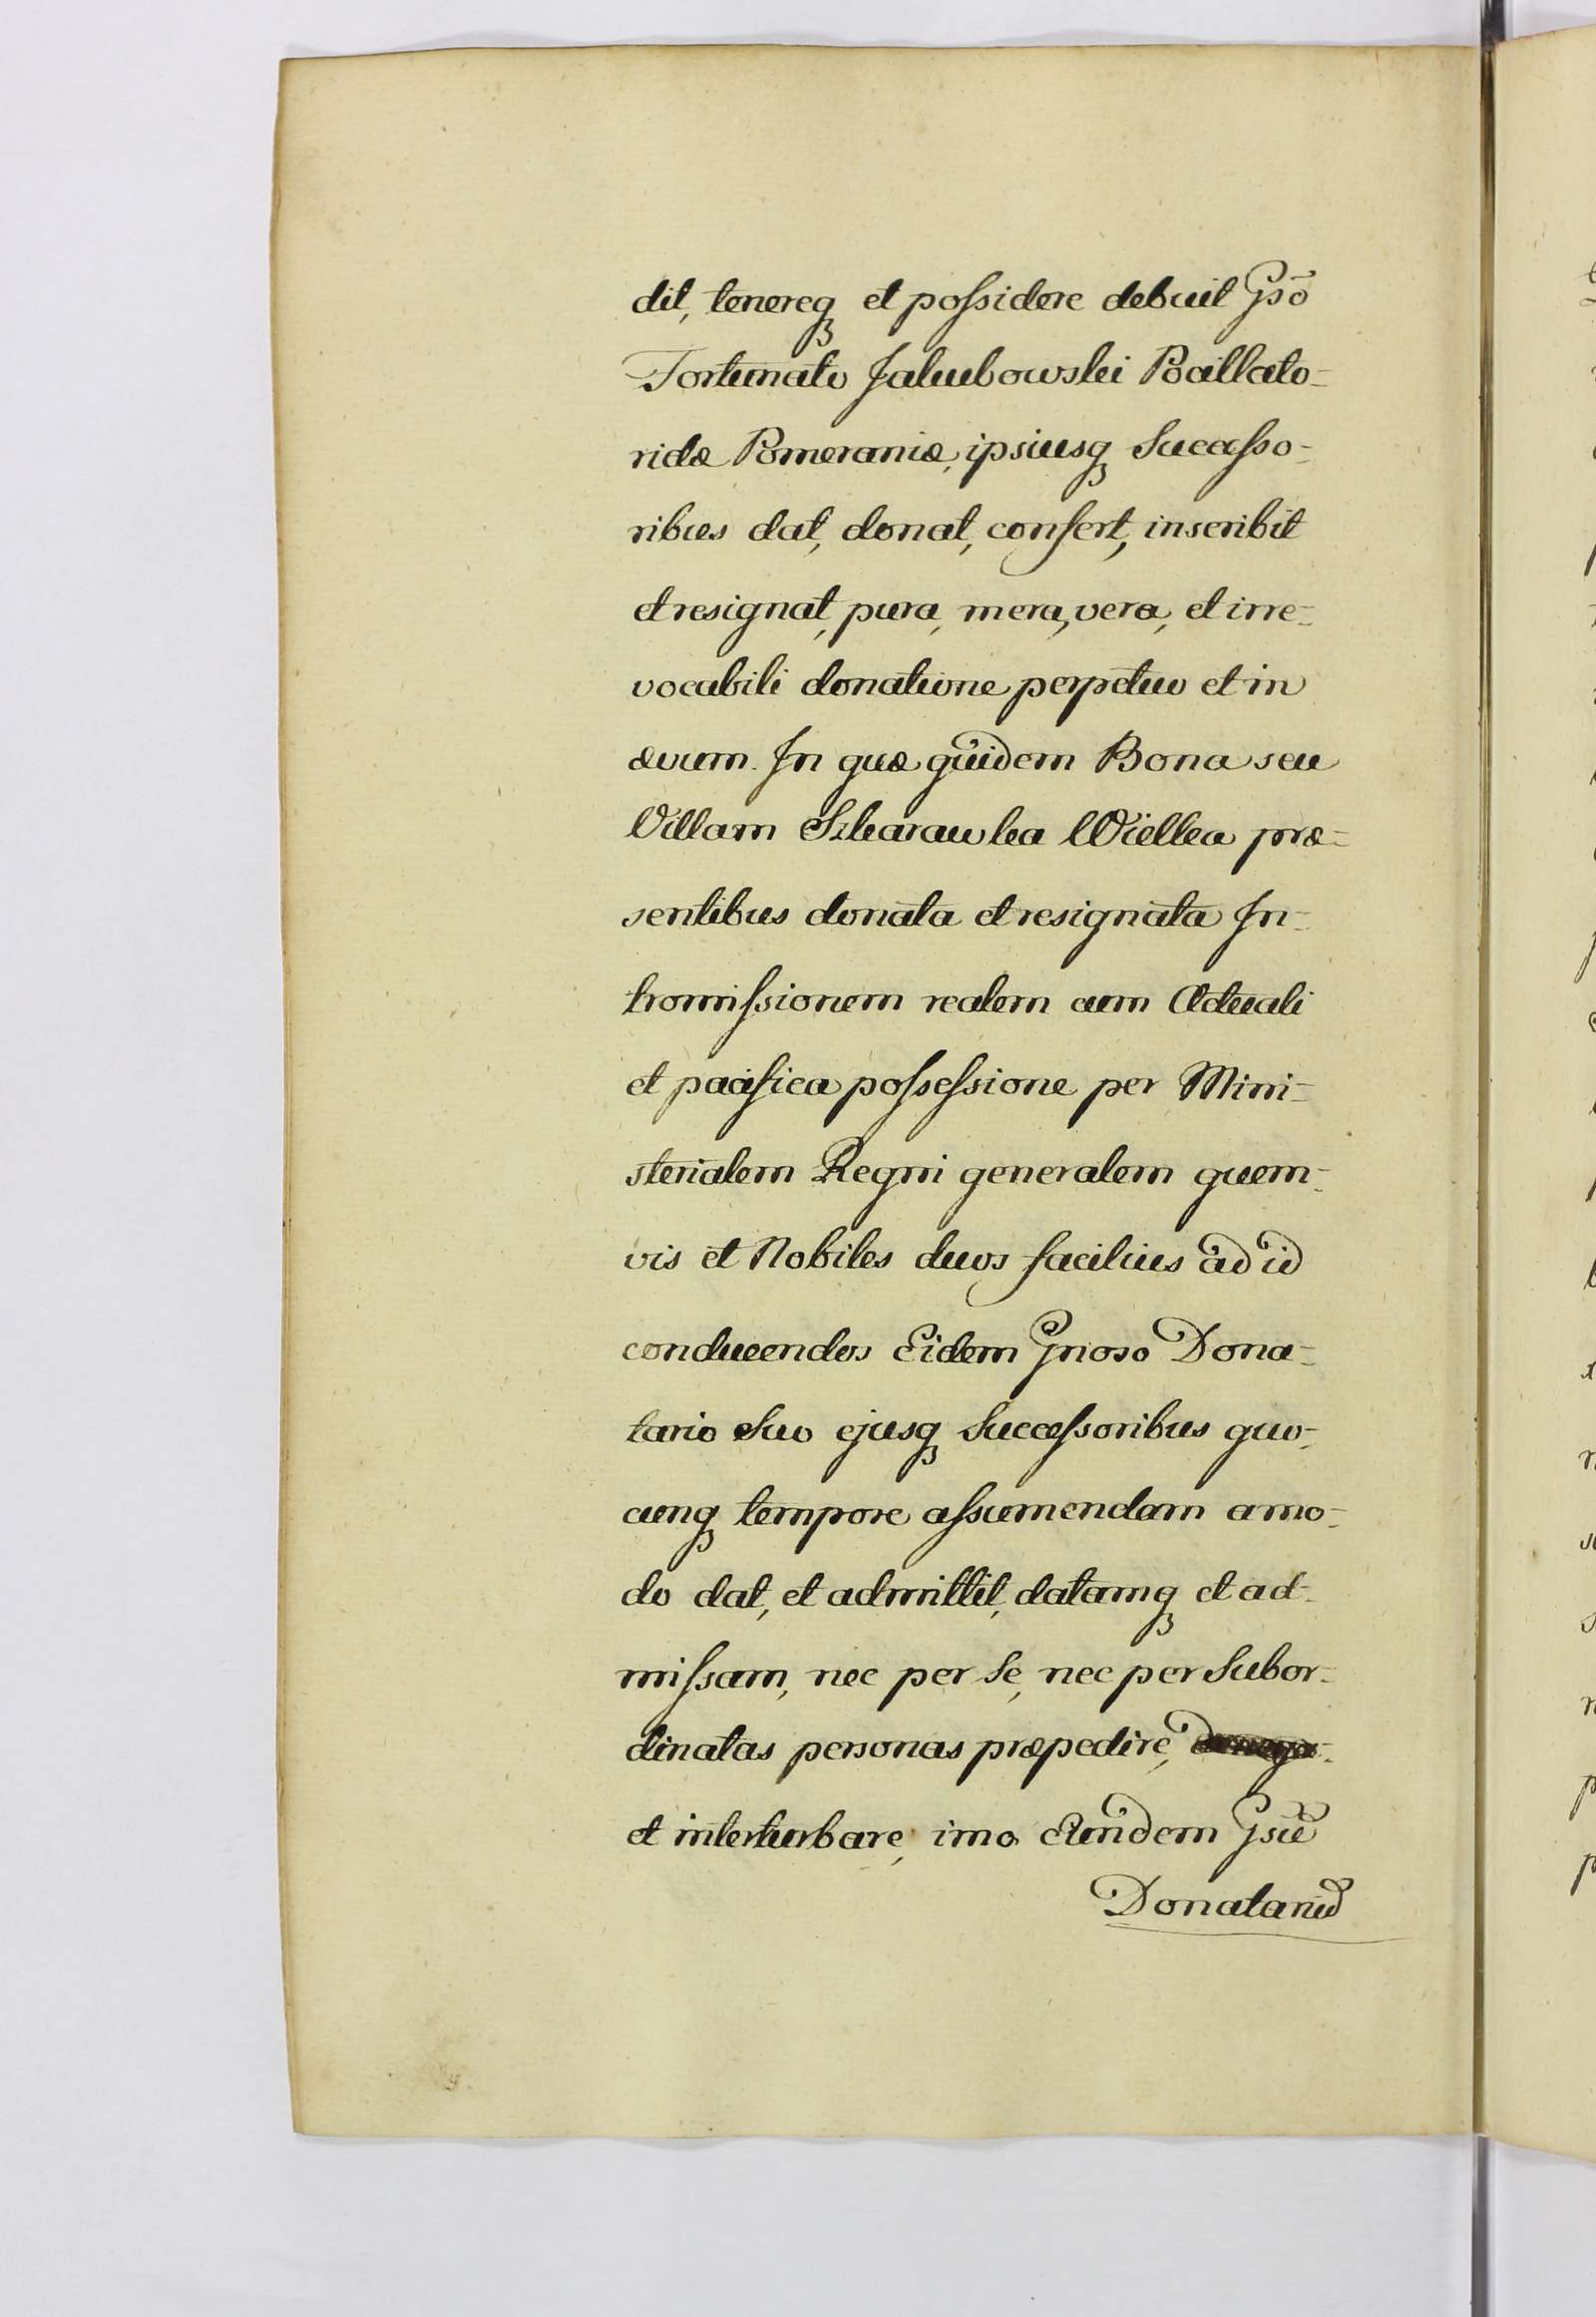 dit, tenereq₃ et poſsidere debuit Gsō
Fortunato Jakubowski Bacillato-
ridæ Pomeraniæ, ipsiusq₃ Succeſso-
ribus dat, donat, confert, inscribit
et resignat, pura, mera, vera, et irre-
vocabili donatione perpetuo et in
ævum. In quæ quidem Bona seu
Villam Szkarawka Wielka præ-
sentibus donata et resignata In-
tromiſsionem realem cum Actuali
et pacifica poſseſsione per Mini-
sterialem Regni generalem quem-
vis et Nobiles duos facilius ad id
conducendos Eidem Gnoso Dona-
tario Suo ejusq₃ Succeſsoribus quo-
cunq₃ tempore aſsumendam amo-
do dat, et admittit, datamq₃ et ad-
miſsam, nec per Se, nec per Subor-
dinatas personas præpedire,
et interturbare, imo Eundem Gsū
Donatariū